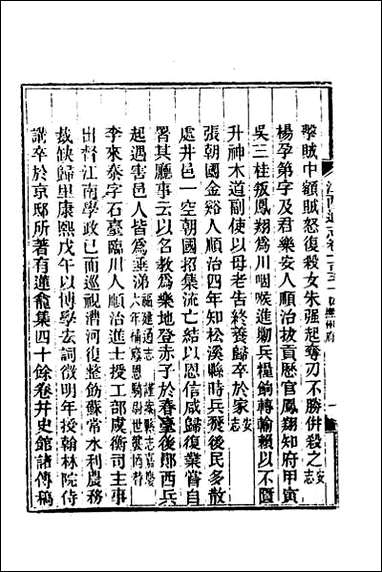 擊賊中額賊怒復殺女朱强起奪刃不勝併殺之
楊孕第字及君樂安人順治拔貢歷官鳳翔知府甲寅
吳三桂叛鳳翔為川咽喉進勦兵糧餉轉輸賴以不匱
升神木道副使以母老告終養歸卒於家
張朝國金谿人順治四年知松溪縣時兵燹後民多散
處井邑一空朝國招集流亡結以恩信咸歸復業嘗自
署其廳事云以名教為樂地登赤子於春臺後鄖西兵
起遇害邑人皆為垂涕
李來泰字石臺臨川人順治進士授工部虞衡司主事
出督江南學政已而巡視漕河復整飭蘇常水利農務
裁缺歸里康熙戊午以博學宏詞徵明年授翰林院侍
講卒於京邸所著有蓮龕集四十餘卷幷史館諸傳稿